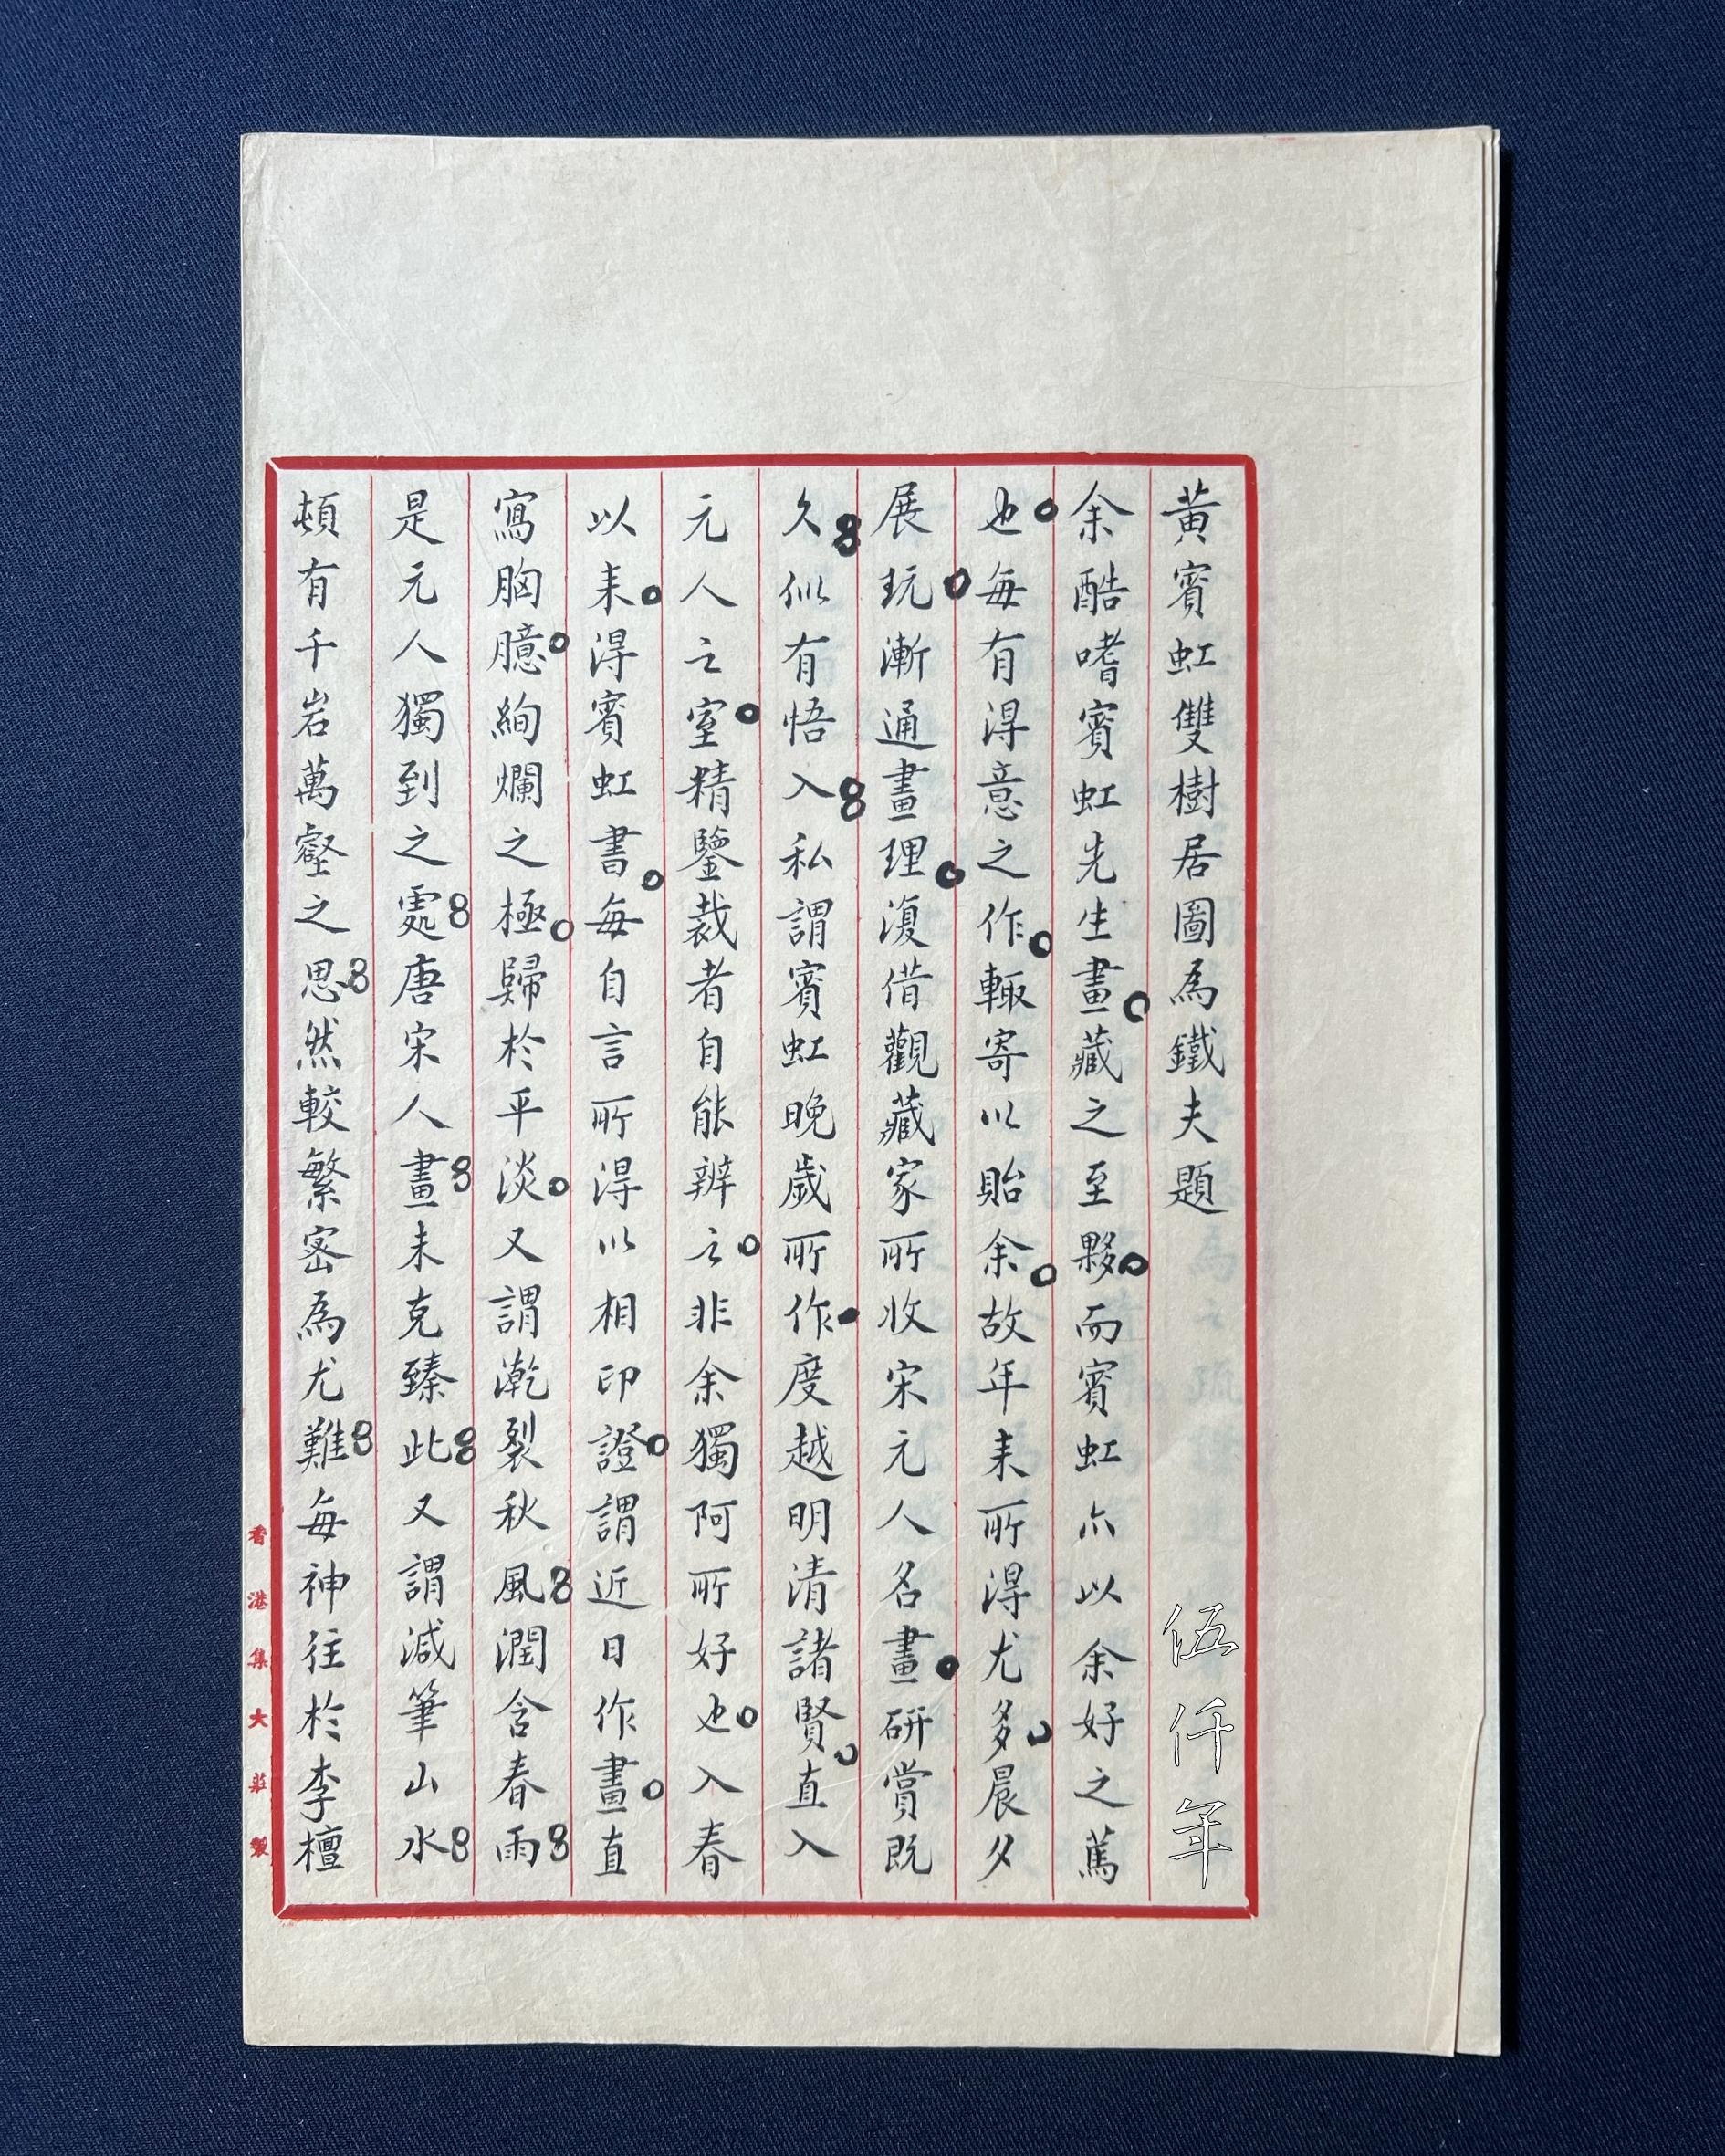 黃賓虹雙樹居圖為鐵夫題
余酷嗜賓虹先生畫。藏之至夥。而賓虹亦以余好之篤
也。每有得意之作。輙寄以貽余。故年来所得尤多。晨夕
展玩。漸通畫理。復借觀藏家所收宋元人名畫。研賞既
久。似有悟入。私謂賓虹晚歲所作。度越明清諸賢。直入
元人之室。精鑒裁者自能辨之。非余獨阿所好也。入春
以来。得賓虹書。每自言所得以相印證。謂近日作畫。直
寫胸臆。絢爛之極。歸於平淡。又謂乾裂秋風。潤含春雨。
是元人獨到之處。唐宋人畫。未克臻此。又謂減筆山水。
頓有千岩萬壑之思。然較繁密為尤難。每神往於李檀
伍仟年
香港集大莊製